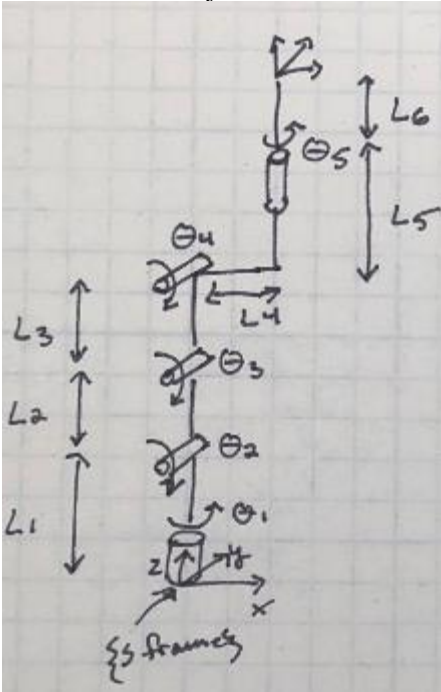 L6
θ5
L5
θ4
L4
L3
θ3
L2
θ2
L1
θ1
z
y
x
{s frame}